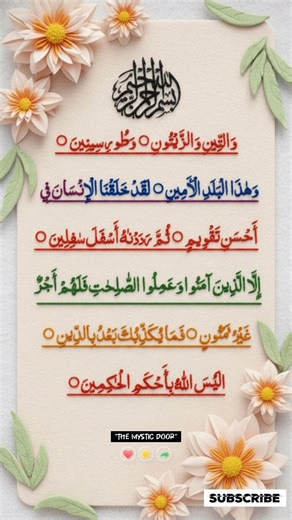 بسم الله الرحمن الرحيم
وَالتِّينِ وَالزَّيْتُونِ ○ وَطُورِ سِينِينَ ○
وَهٰذَا الْبَلَدِ الْأَمِينِ ○ لَقَدْ خَلَقْنَا الْإِنْسَانَ فِي
أَحْسَنِ تَقْوِيمٍ ○ ثُمَّ رَدَدْنٰهُ أَسْفَلَ سٰفِلِينَ ○
إِلَّا الَّذِينَ آمَنُوا وَعَمِلُوا الصّٰلِحٰتِ فَلَهُمْ أَجْرٌ
غَيْرُ مَمْنُونٍ ○ فَمَا يُكَذِّبُكَ بَعْدُ بِالدِّينِ ○
الَيْسَ اللّٰهُ بِأَحْكَمِ الْحٰكِمِينَ ○
"THE MYSTIC DOOR"
SUBSCRIBE